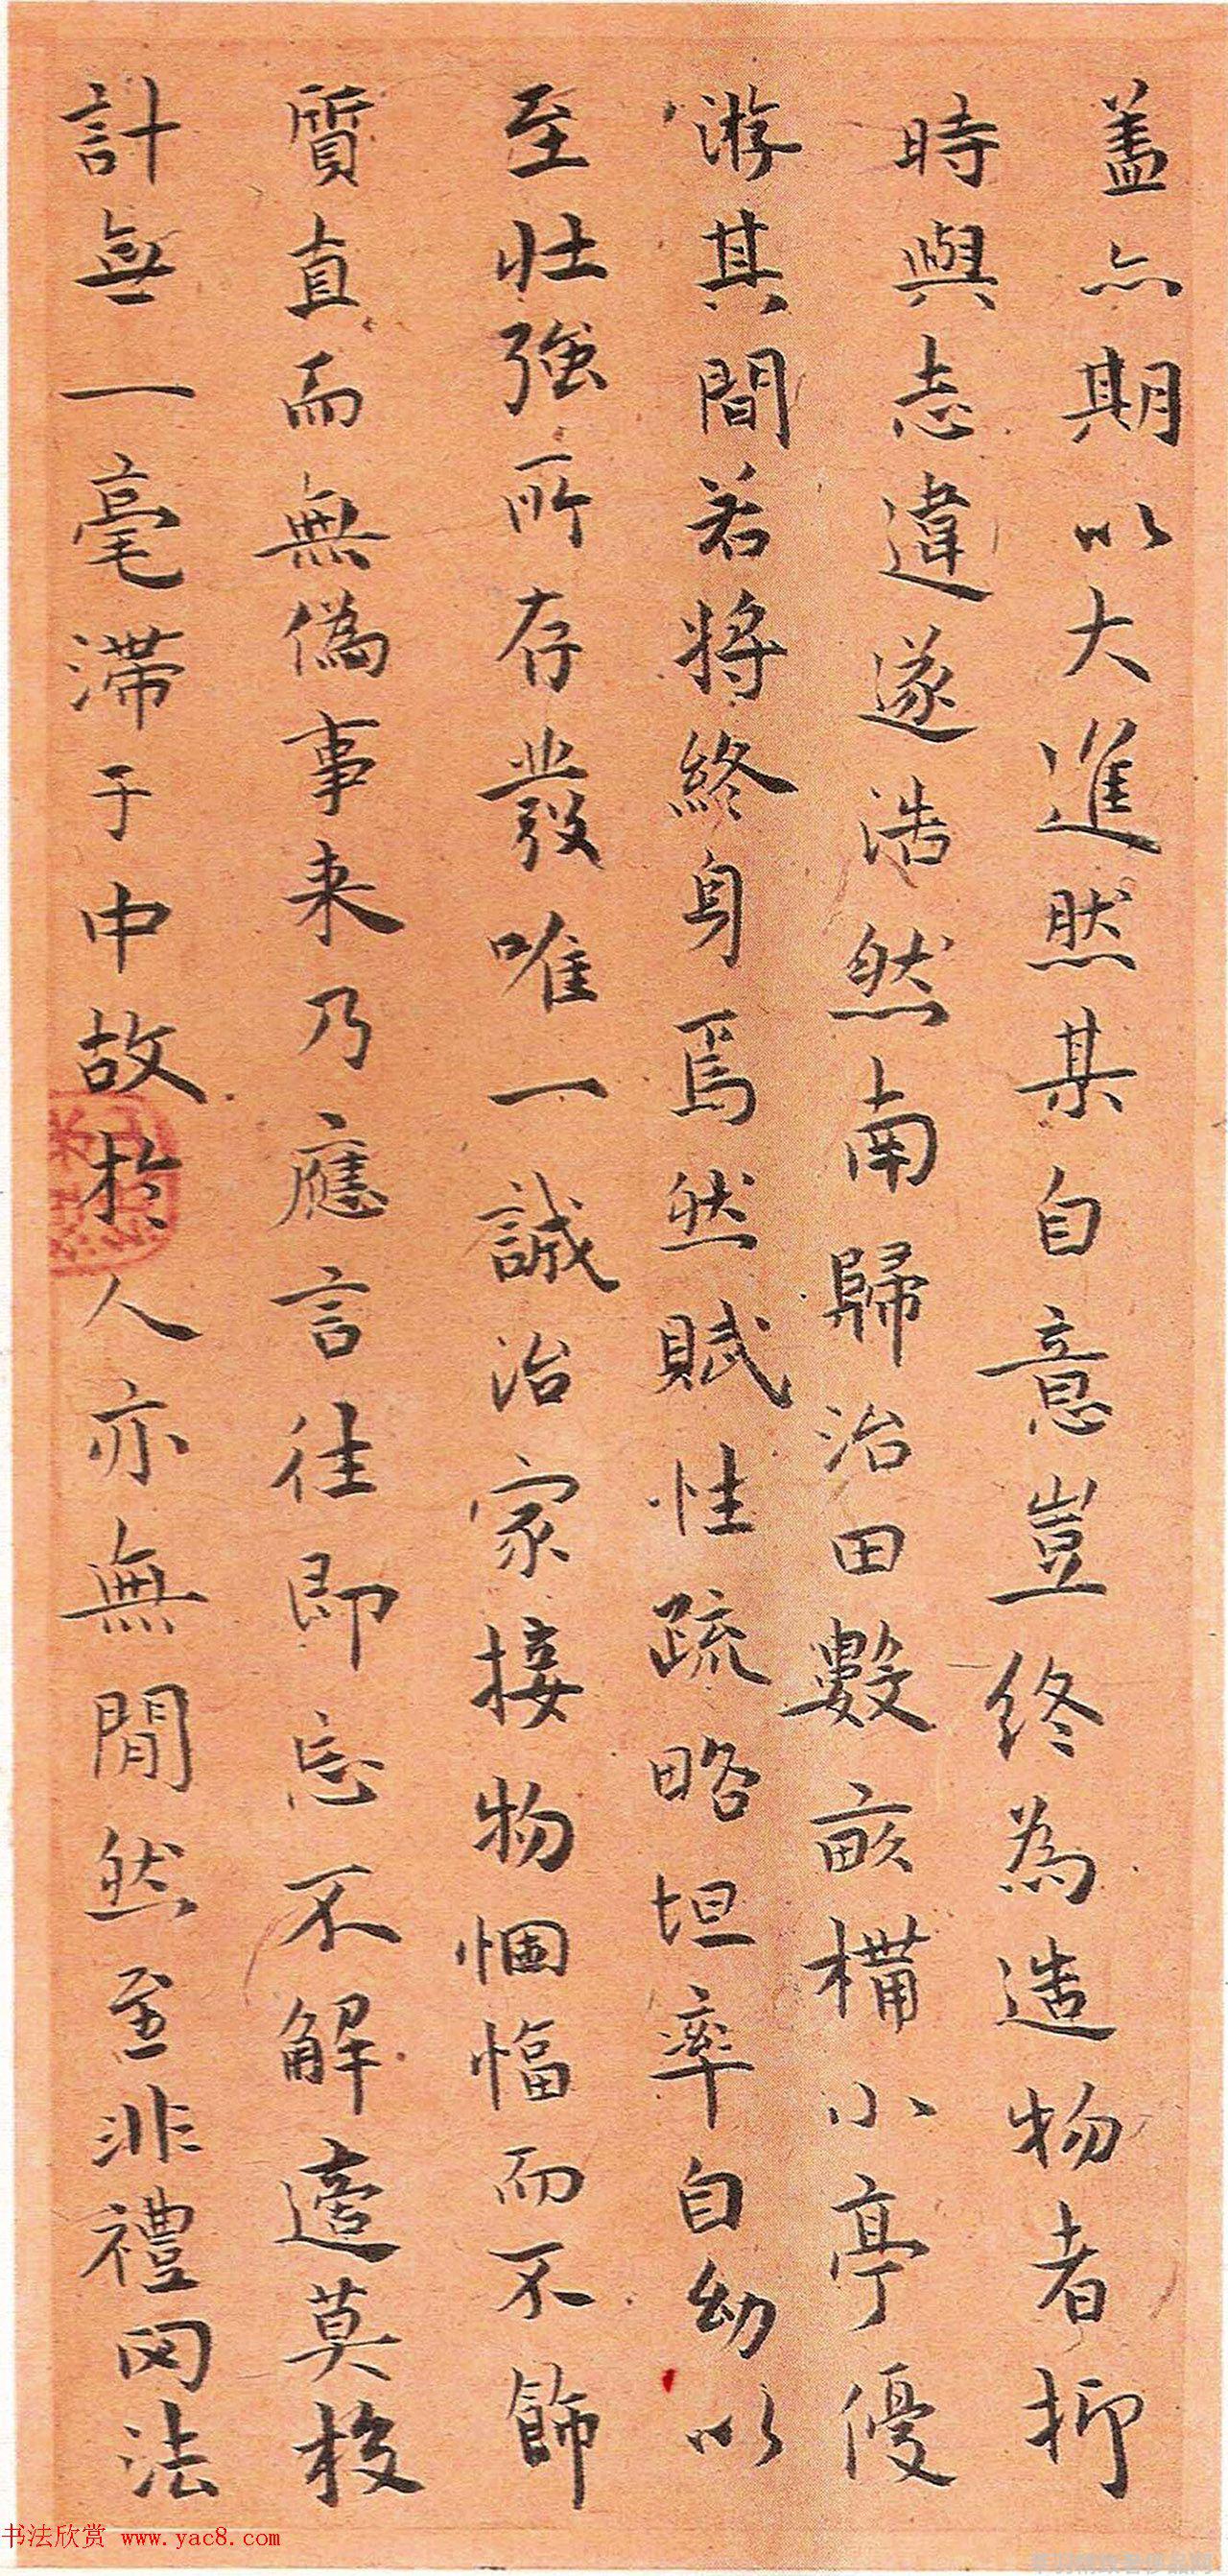 盖亦期以大進然某自意豈終為造物者抑
時與志違遂浩然南歸治田數畝構小亭優
游其間若將終身焉然賦性疏略坦率自幼以
至壯強所存發唯一誠治家接物悃愊而不飾
質直而無偽事来乃應言往即忘不解逢莫校
計無一毫滯于中故於人亦無閒然至非禮罔法
书法欣赏 www.yac8.com